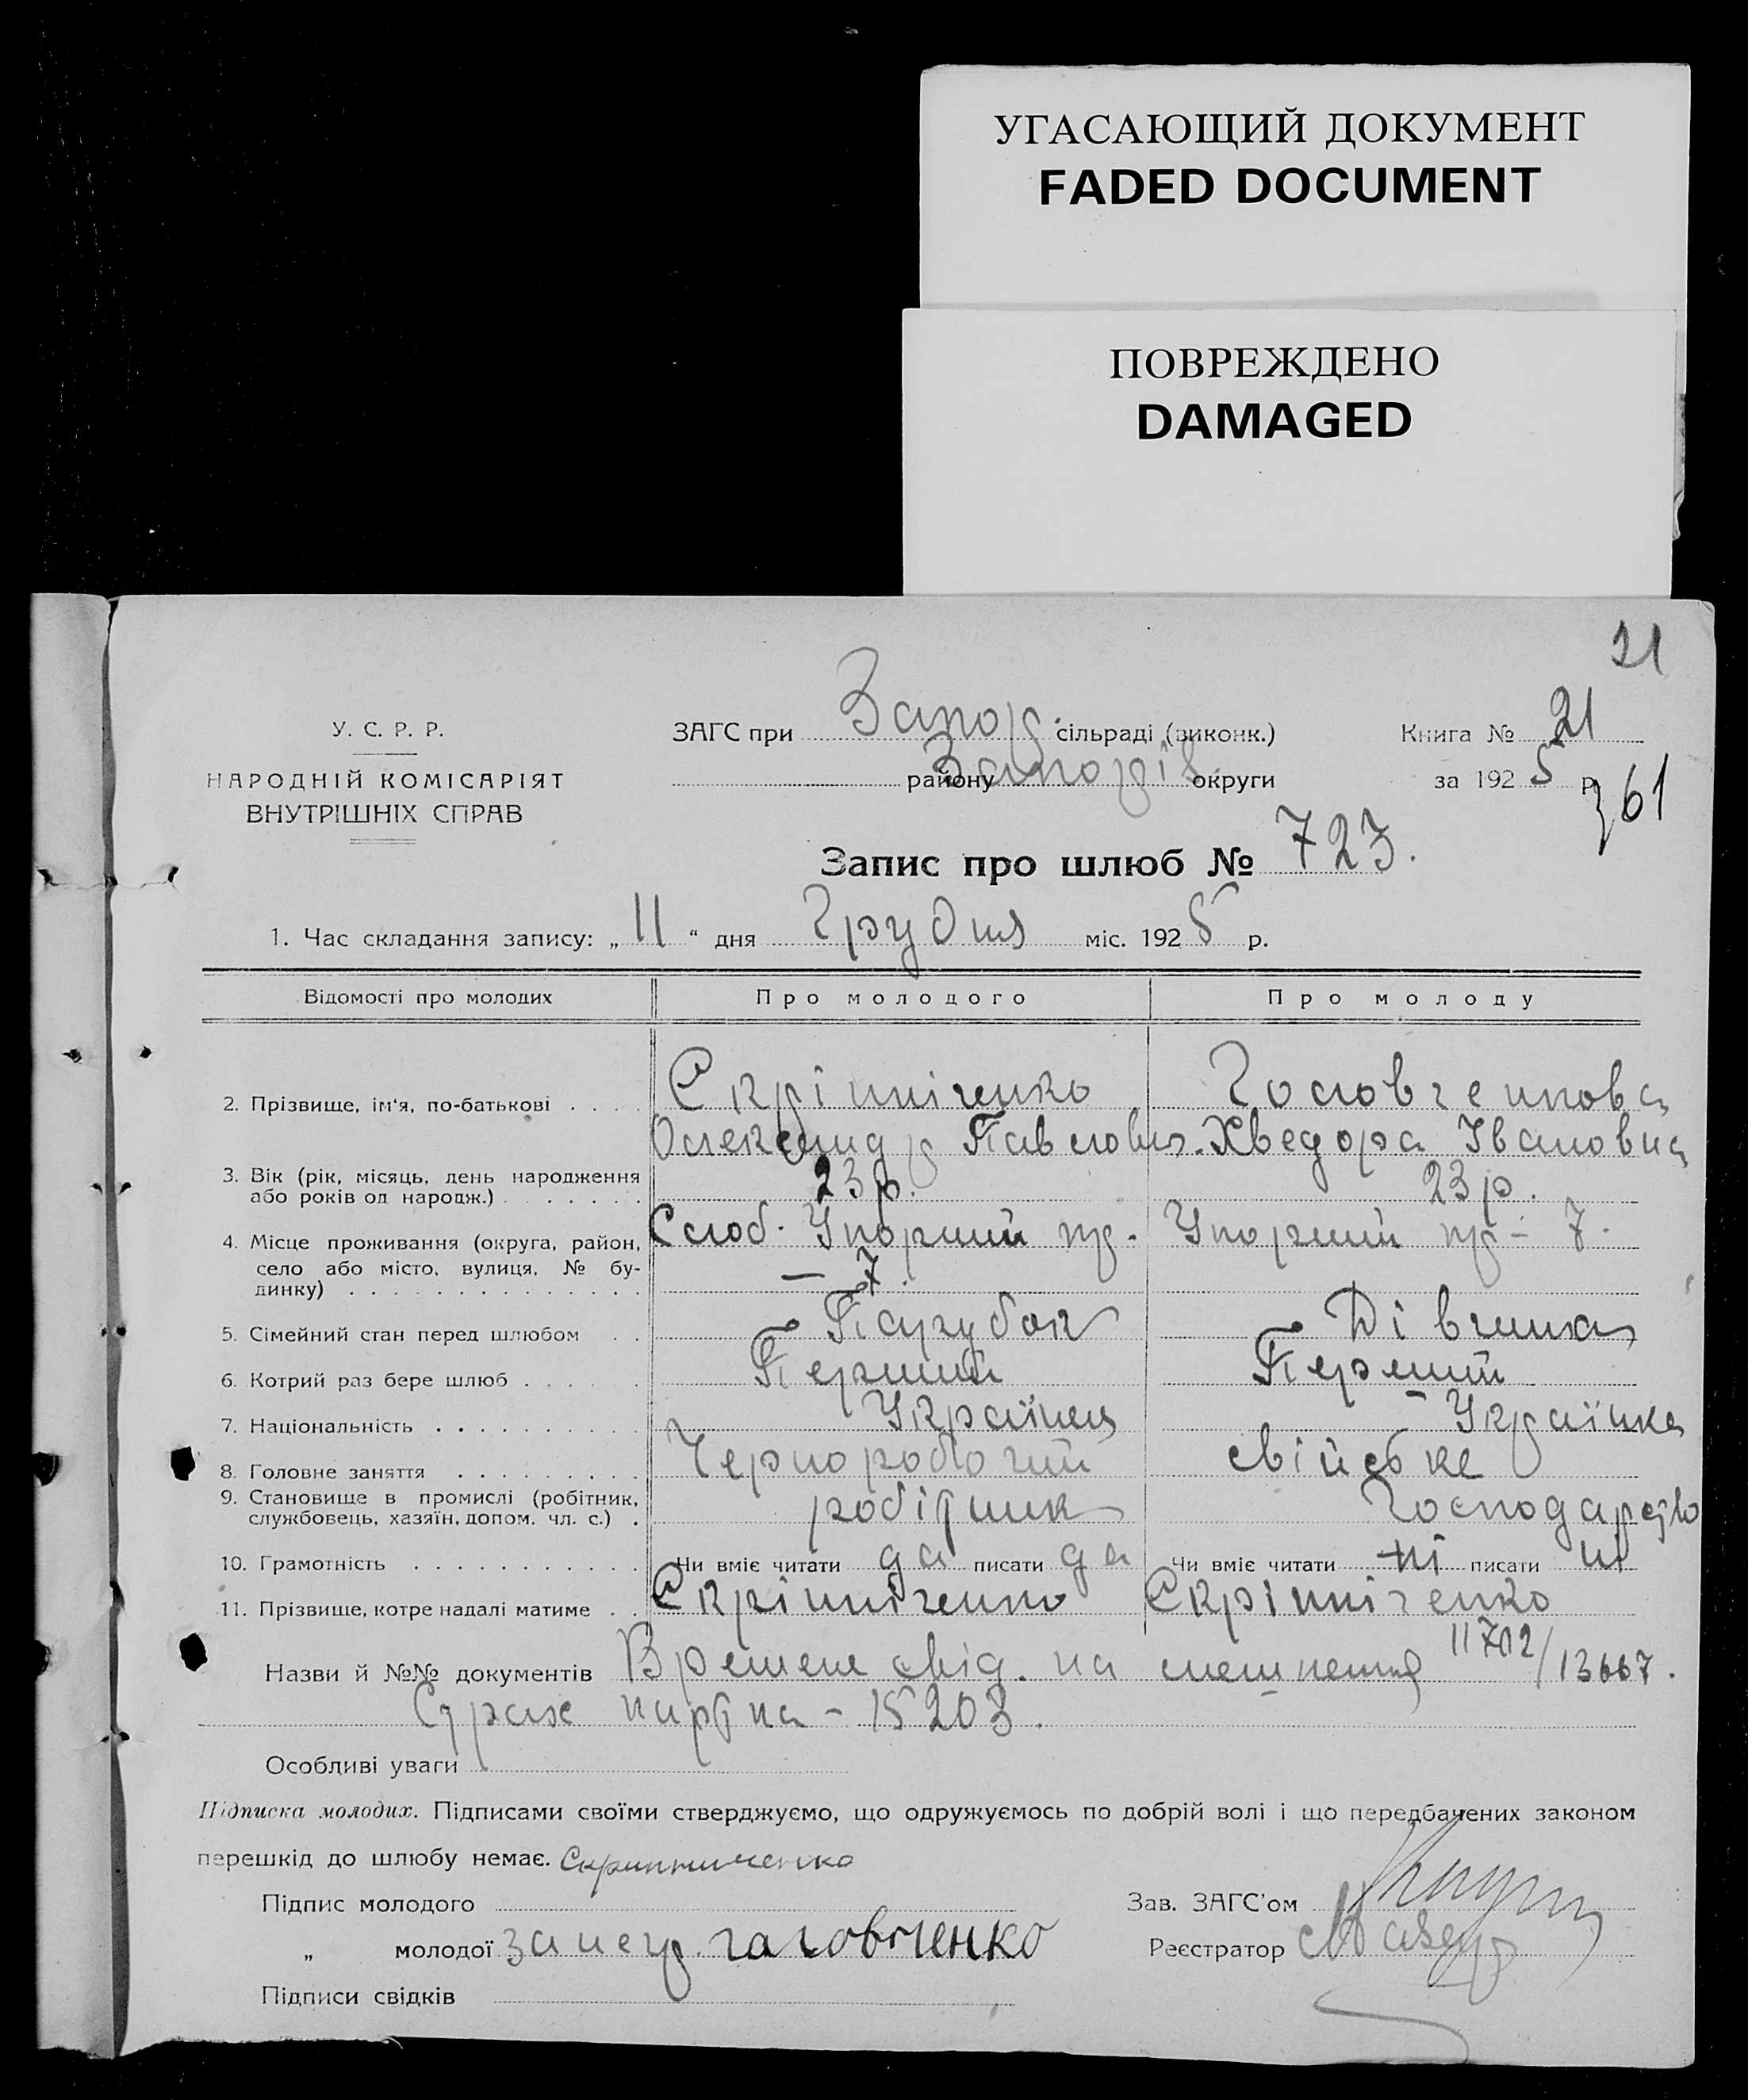 УГАСАЮЩИЙ ДОКУМЕНТ
FADED DOCUMENT
ПОВРЕЖДЕНО
DAMAGED
21
У. С. Р. Р.
НАРОДНІЙ КОМІСАРІЯТ
ВНУТРІШНІХ СПРАВ
ЗАГС при Запор. сільраді (виконк.)
району Запоріз. округи
Книга № 21
за 1925 р.
361
Запис про шлюб № 723.
1. Час складання запису: „11“ дня Грудня міс. 1925 р.
Відомості про молодих Про молодого Про молоду
2. Прізвище, ім'я, по-батькові Скрінніченко Головченкова
Олександр Павлович. Хведора Івановна
3. Вік (рік, місяць, день народження або років од народж.) 23 р. 23 р.
4. Місце проживання (округа, район, село або місто, вулиця, № будинку) Слоб. Упорний пр. – 7. Упорний пр – 7.
5. Сімейний стан перед шлюбом Парубок Дівчина
6. Котрий раз бере шлюб Перший Перший
7. Національність Українец Українка
8. Головне заняття Черноробочий свійске
9. Становище в промислі (робітник, службовець, хазяїн, допом. чл. с.) робітник Господарство
10. Грамотність Чи вміє читати да писати да Чи вміє читати ні писати ні
11. Прізвище, котре надалі матиме Скрінніченко Скрінніченко
Назви й №№ документів Времене свід. на 11702/13667.
Страх карт на – 15203.
Особливі уваги
Підписка молодих. Підписами своїми стверджуємо, що одружуємось по добрій волі і що передбачених законом
перешкід до шлюбу немає. Скринниченко
Підпис молодого
„ молодої за негр. галовченко
Підписи свідків
Зав. ЗАГС'ом
Реєстратор